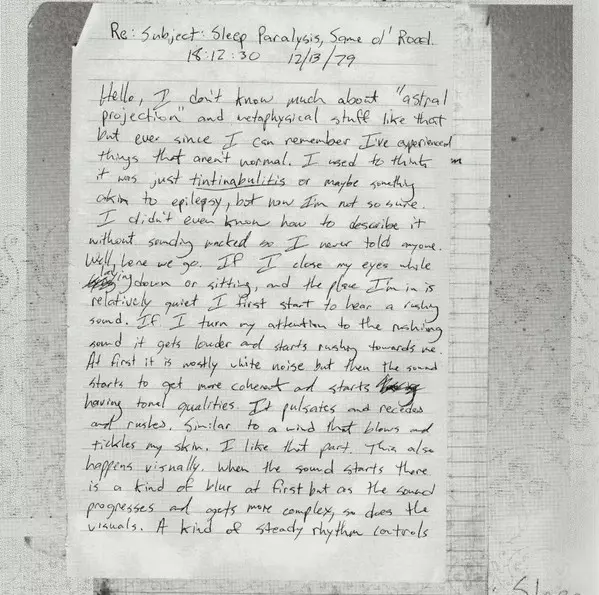 Re: Subject: Sleep Paralysis, Same ol' Road.
18:12:30 12/13/79
Hello, I don't know much about "astral
projection" and metaphysical stuff like that
but ever since I can remember I've experienced
things that aren't normal. I used to think
it was just tintinabulitis or maybe something
akin to epilepsy, but now I'm not so sure.
I didn't even know how to describe it
without sounding wacked so I never told anyone.
Well, here we go. If I close my eyes while
laying down or sitting, and the place I'm in is
relatively quiet I first start to hear a rushing
sound. If I turn my attention to the rushing
sound it gets louder and starts rushing towards me.
At first it is mostly white noise but then the sound
starts to get more coherent and starts
having tonal qualities. It pulsates and recedes
and rushes. Similar to a wind that blows and
tickles my skin. I like that part. This also
happens visually. When the sound starts there
is a kind of blur at first but as the sound
progresses and gets more complex, so does the
visuals. A kind of steady rhythm controls